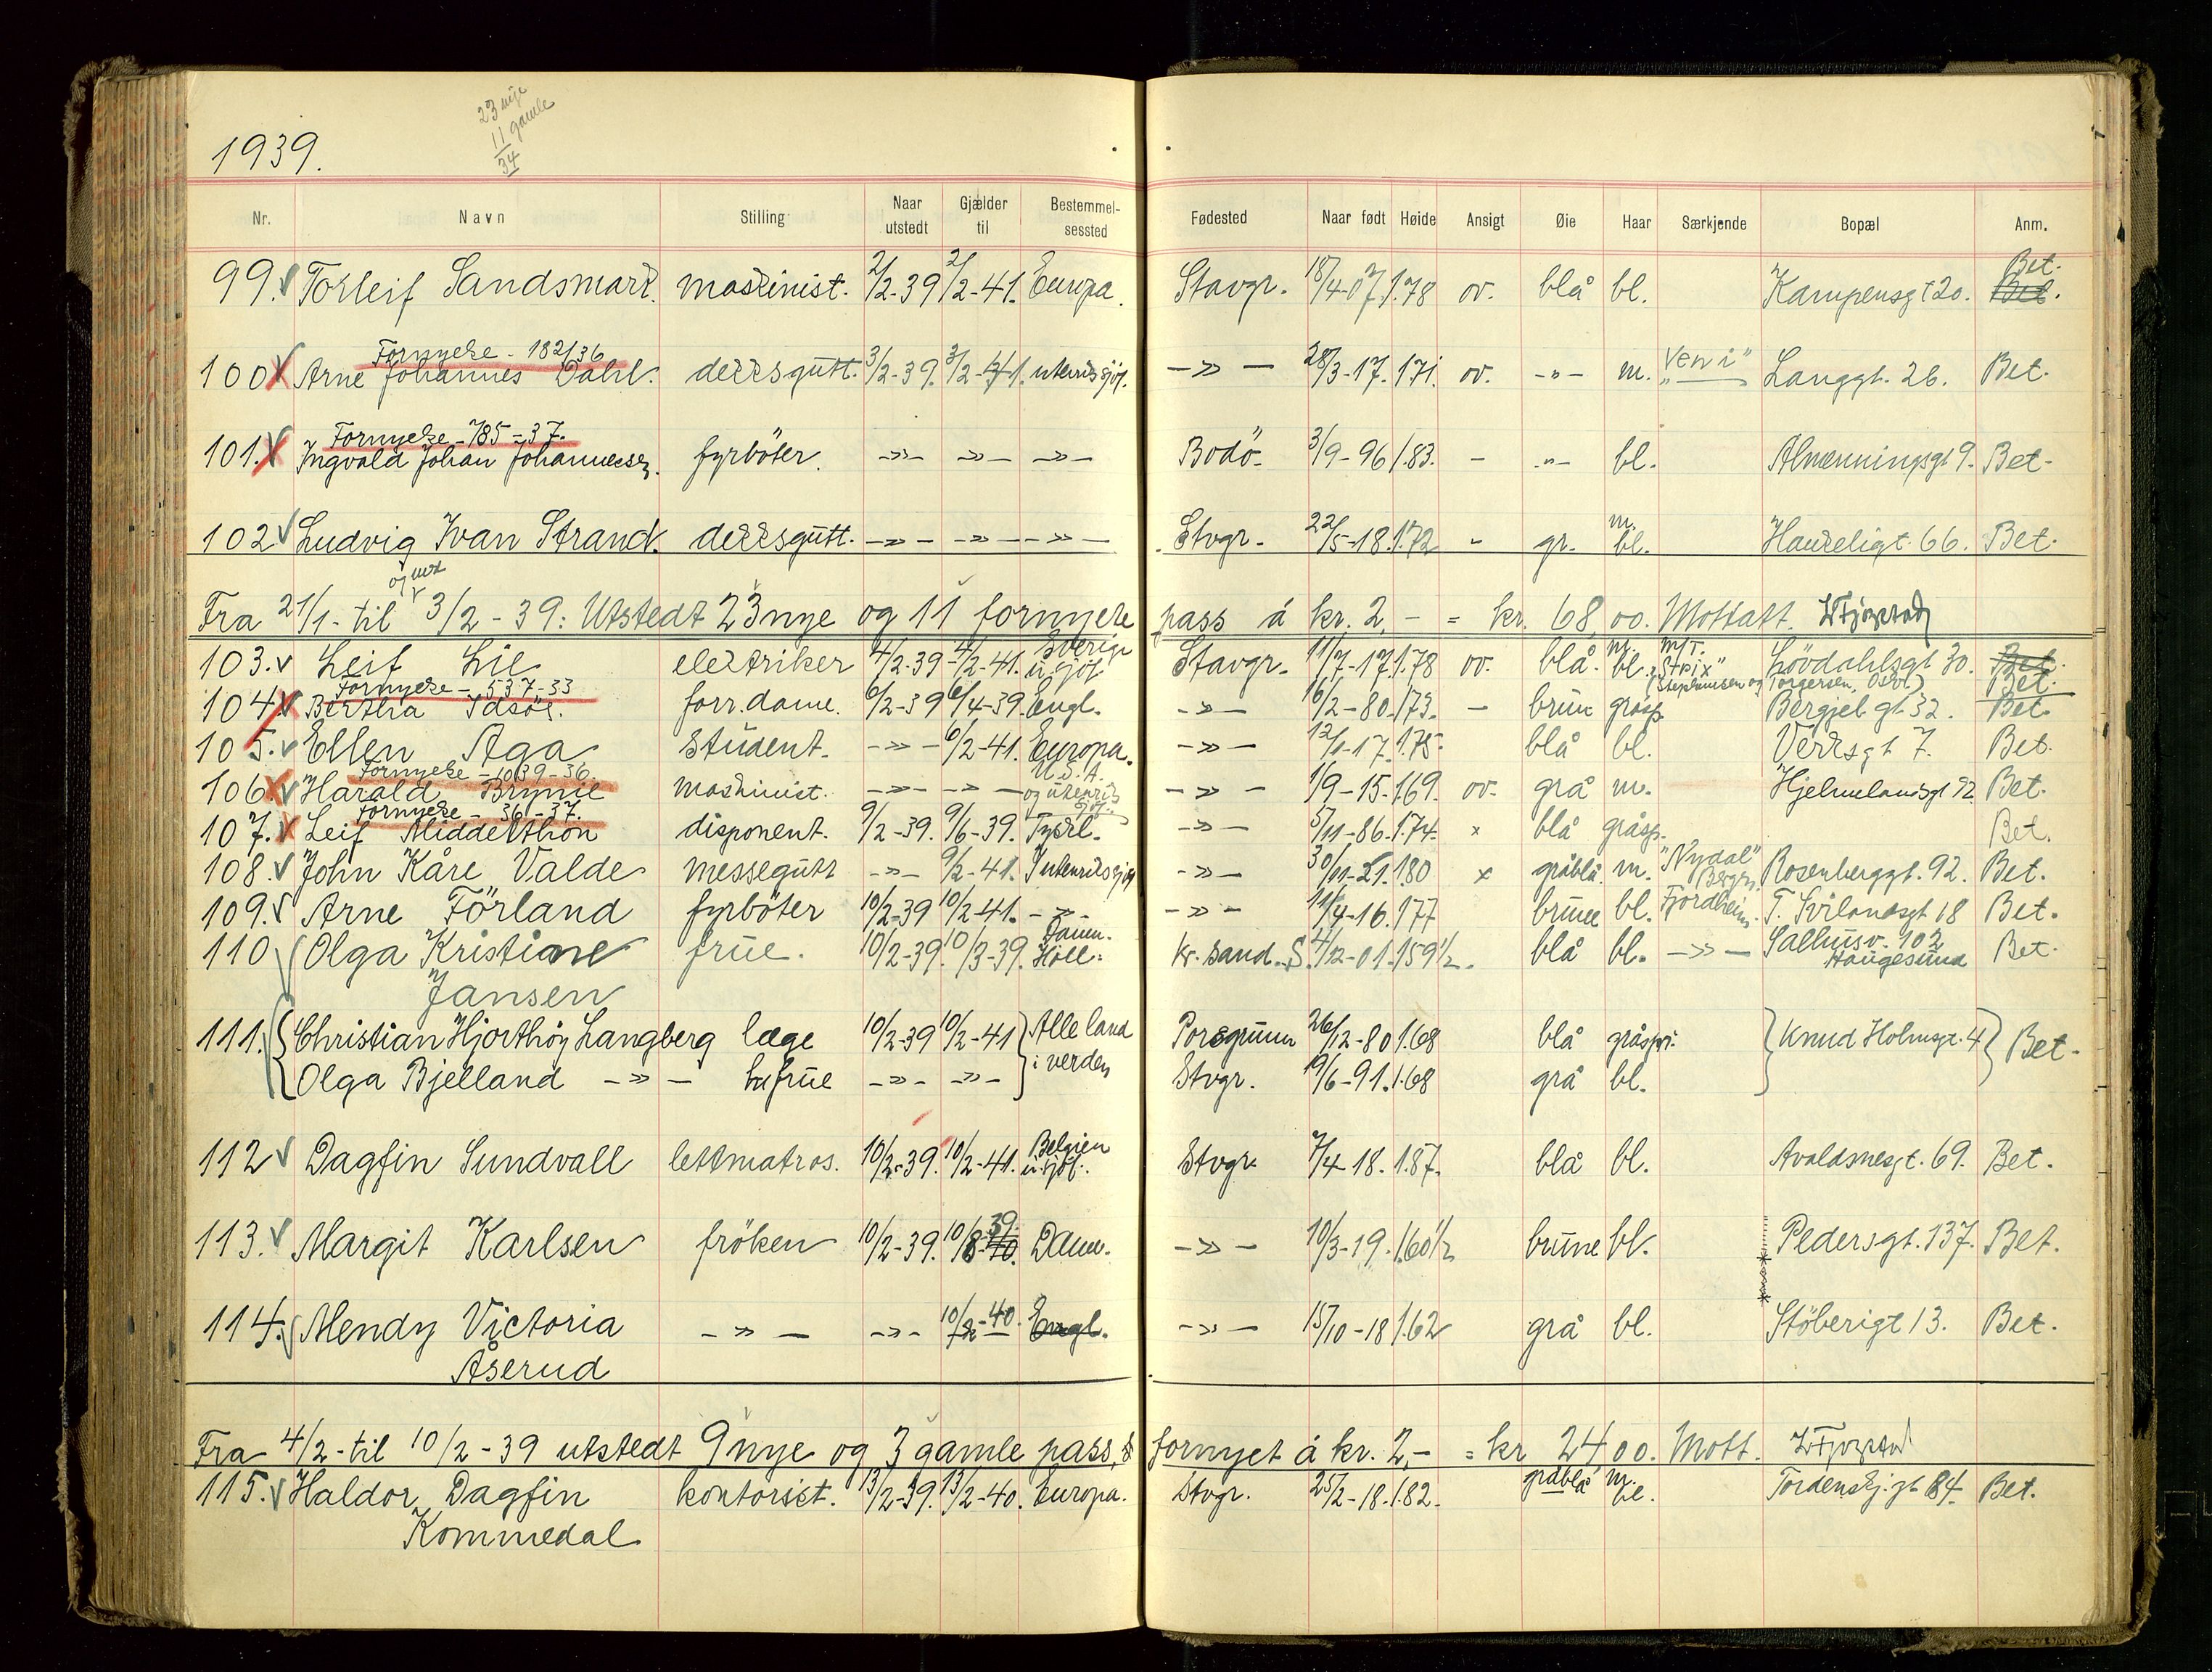 23 nye
11 gamle
34
1939.
Nr. Navn Stilling Naar utstedt Gjælder til Bestemmel-sessted Fødested Naar født Høide Ansigt Øie Haar Særkjende Bopæl Anm.
99. Torleif Sandsmark. maskinist. 2/2-39 2/2-41. Europa. Stavgr. 18/4-07. 1.78 ov. blå bl. Kampensgt 20. Bet. Bet.
Fornyelse - 182/36
100 Arne Johannes Dahl. dekksgutt. 3/2-39. 3/2-41. utenriks sjøf. -»- 28/3-17. 1.71. ov. -"- m. "Veni" Langgt. 26. Bet.
Fornyelse - 785-37.
101. Ingvald Johan Johannesen. fyrböter. -»- -»- -»- Bodö 3/9-96 1.83. - -"- bl. Almenningsgt 9. Bet.
102 Ludvig Ivan Strand. dekksgutt. -»- -»- -»- Stvgr. 22/5-18. 1.72 - gr. m. bl. Haukeligt. 66. Bet.
og med
Fra 21/1- til 3/2 - 39: Utstedt 23 nye og 11 fornyede pass á kr. 2,- = kr. 68,00. Mottatt.
103. Leif Lie elektriker 4/2-39 4/2-41. Sverige u.sjöf. Stavgr. 11/7-17 1.78 ov. blå. m. bl. M/T. "Strix" Lövdahlsgt 30. Bet. Bet.
(Stephansen og Torgersen, Oslo)
Fornyelse - 537-33
104. Bertha Idsöe. forr.dame. 6/2-39 6/4-39. Engl. -»- 16/2-80. 173. - brun gråsp. Bergjel. gt 32. Bet.
105. Ellen Aga student. -»- 6/2-41. Europa. -»- 12/1-17. 1.75. blå bl. Verksgt 7. Bet.
Fornyelse - 1039-36.
106 Harald Brynie maskinist. -»- -»- U.S.A. og utenriks sjöf. -»- 1/9-15. 1.69. ov. grå m. Hjelmelandsgt 32 Bet.
Fornyelse - 361-37.
107. Leif Middelthon disponent. 9/2-39. 9/6-39. Tyskl. -»- 5/11-86. 1.74. x blå gråsp. Bet.
108. John Kåre Valde messegutt -»- 9/2-41. Utenriks sjöf -»- 30/11-21. 1.80 x gråblå. m. "Nydal" Bergen. Rosenberggt. 92. Bet.
109. Arne Förland fyrböter 10/2-39 10/2-41. -»- -»- 11/4-16. 1.77 brune bl. Fjordheim. T. Svilandsgt 18 Bet.
110 Olga Kristiane frue. 10/2-39. 10/3-39. Danm. Holl. Kr.sand.S. 4/12-01. 159 1/2. blå bl. -»- Salhusv. 102 Haugesund Bet.
Jansen
111. Christian Hjorthöy Langberg læge 10/2-39 10/2-41 Alle land Porsgrunn 26/12-80 1.68 blå gråspr. Knud Holmsgt. 4 Bet.
Olga Bjelland -»- frue -»- -»- i verden Stvgr. 19/6-91. 1.68 grå bl.
112 Dagfin Sundvall lettmatros. 10/2-39. 10/2-41. Belgien u.sjöf. Stvgr. 7/4-18. 1.87. blå bl. Avaldsnesgt. 69. Bet.
113. Margit Karlsen fröken 10/2-39. 10/8-39. 40. Danm. -»- 10/3-19. 1.60 1/2 brune bl. Pedersgt. 137. Bet.
114. Mendy Victoria -»- -»- 10/2-40. Engl. -»- 15/10-18 1.62 grå bl. Stöberigt 13. Bet.
Åserud
Fra 4/2- til 10/2-39 utstedt 9 nye og 3 gamle pass fornyet á kr. 2,- = kr 24 00. Mott.
115. Haldor Dagfin kontorist. 13/2-39. 13/2-40. Europa. Stvgr. 25/2-18. 1.82. gråblå m. bl. Tordenskj.gt 84 Bet.
Kommedal